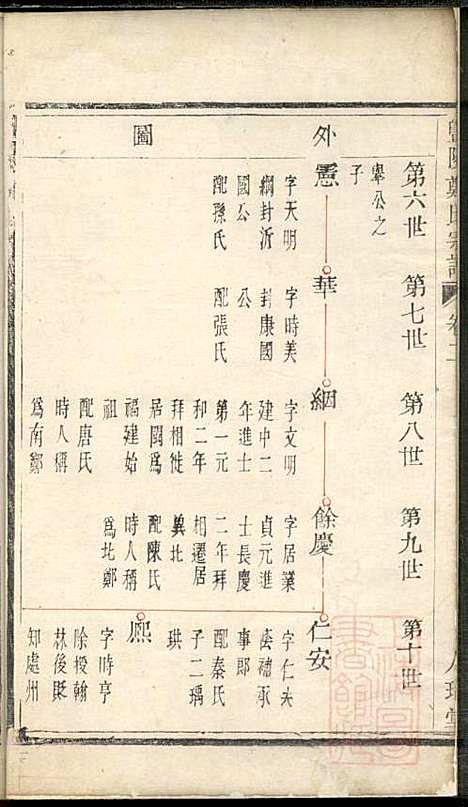 暨陽鄭氏宗譜 卷二
第六世 第七世 第八世 第九世 第十世
外
圖
舉公之
子
憲
字天明
綱封沂
國公
配孫氏
華
字時美
封康國
公
配張氏
絪
字文明
建中二
年進士
第一元
和二年
拜相徙
居閩爲
福建始
祖
配唐氏
時人稱
爲南鄭
餘慶
字居業
貞元進
士長慶
二年拜
相遷居
冀北
配陳氏
時人稱
爲北鄭
仁安
字仁夫
蔭禱承
事郎
配秦氏
子二瑀
珙
熙
字時亨
除授翰
林後貶
知處州